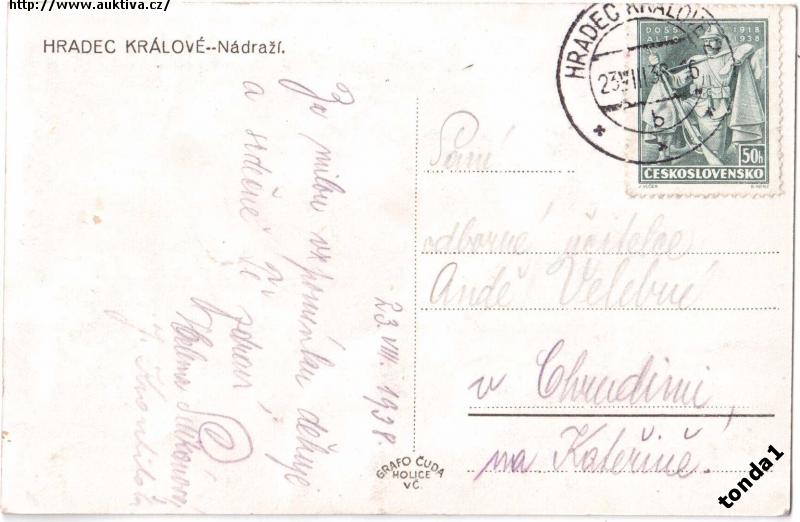 http://www.auktiva.cz/
HRADEC KRÁLOVÉ--Nádraží.
Za milou vzpomínku děkuje
a srdečně Tě
zdraví
23.VIII. 1938.
HRADEC KRÁLOVÉ
23.VIII.38.-16
* b *
DOSS ALTO 1918 1938
50h
ČESKOSLOVENSKO
Paní
odborné učitelce
Andě Velebné
v Chrudimi,
na Kateřině.
GRAFO ČUDA
HOLICE
V Č.
tonda1